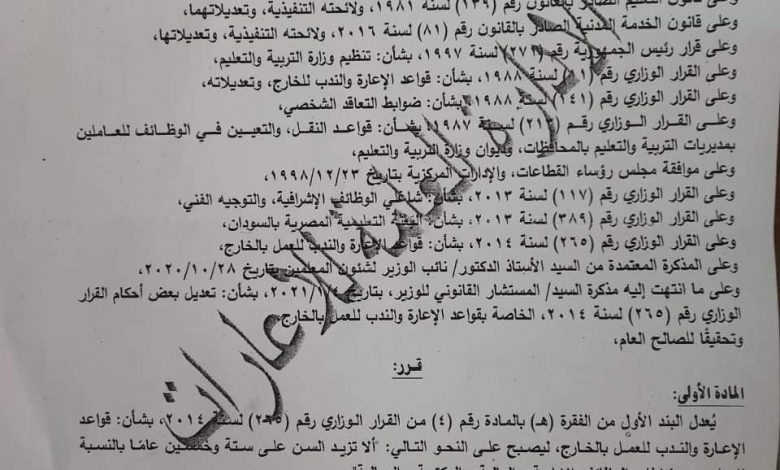 وعلى قانون التعليم الصادر بالقانون رقم (١٣٩) لسنة ١٩٨١، ولائحته التنفيذية، وتعديلاتهما،
وعلى قانون الخدمة المدنية الصادر بالقانون رقم (٨١) لسنة ٢٠١٦، ولائحته التنفيذية، وتعديلاتها،
وعلى قرار رئيس الجمهورية رقم (٢٧١) لسنة ١٩٩٧، بشأن: تنظيم وزارة التربية والتعليم،
وعلى القرار الوزاري رقم لسنة ١٩٨٨، بشأن: قواعد الإعارة والندب للخارج، وتعديلاته،
وعلى القرار الوزاري رقم (١٤١) لسنة ١٩٨٨، بشأن: ضوابط التعاقد الشخصي،
وعلى القرار الوزاري رقم لسنة ١٩٨٧، بشأن: قواعد النقل، والتعيين في الوظائف للعاملين
بمديريات التربية والتعليم بالمحافظات، وديوان وزارة التربية والتعليم،
وعلى موافقة مجلس رؤساء القطاعات، والإدارات المركزية بتاريخ ١٩٩٨/١٢/٢٣،
وعلى القرار الوزاري رقم (١١٧) لسنة ٢٠١٣، بشأن: شاغلي الوظائف الإشرافية، والتوجيه الفني،
وعلى القرار الوزاري رقم (٣٨٩) لسنة ٢٠١٣، بشأن: البعثة التعليمية المصرية بالسودان،
وعلى القرار الوزاري رقم (٢٦٥) لسنة ٢٠١٤، بشأن: قواعد الإعارة والندب للعمل بالخارج،
وعلى المذكرة المعتمدة من السيد الأستاذ الدكتور/ نائب الوزير لشئون المعلمين بتاريخ ٢٠٢٠/١٠/٢٨،
وعلى ما انتهت إليه مذكرة السيد/ المستشار القانوني للوزير، بتاريخ بشأن: تعديل بعض أحكام القرار
الوزاري رقم (٢٦٥) لسنة ٢٠١٤، الخاصة بقواعد الإعارة والندب للعمل بالخارج،
وتحقيقًا للصالح العام،
قـرر:
المادة الأولى:
يُعدل البند الأول من الفقرة (هـ) بالمادة رقم (٤) من القرار الوزاري رقم (٢٦٥) لسنة ٢٠١٤، بشأن: قواعد
الإعارة والندب للعمل بالخارج، ليصبح على النحو التالي: "ألا تزيد السن على ستة وخمسين عامًا بالنسبة
الإدارة العامة للإعارات